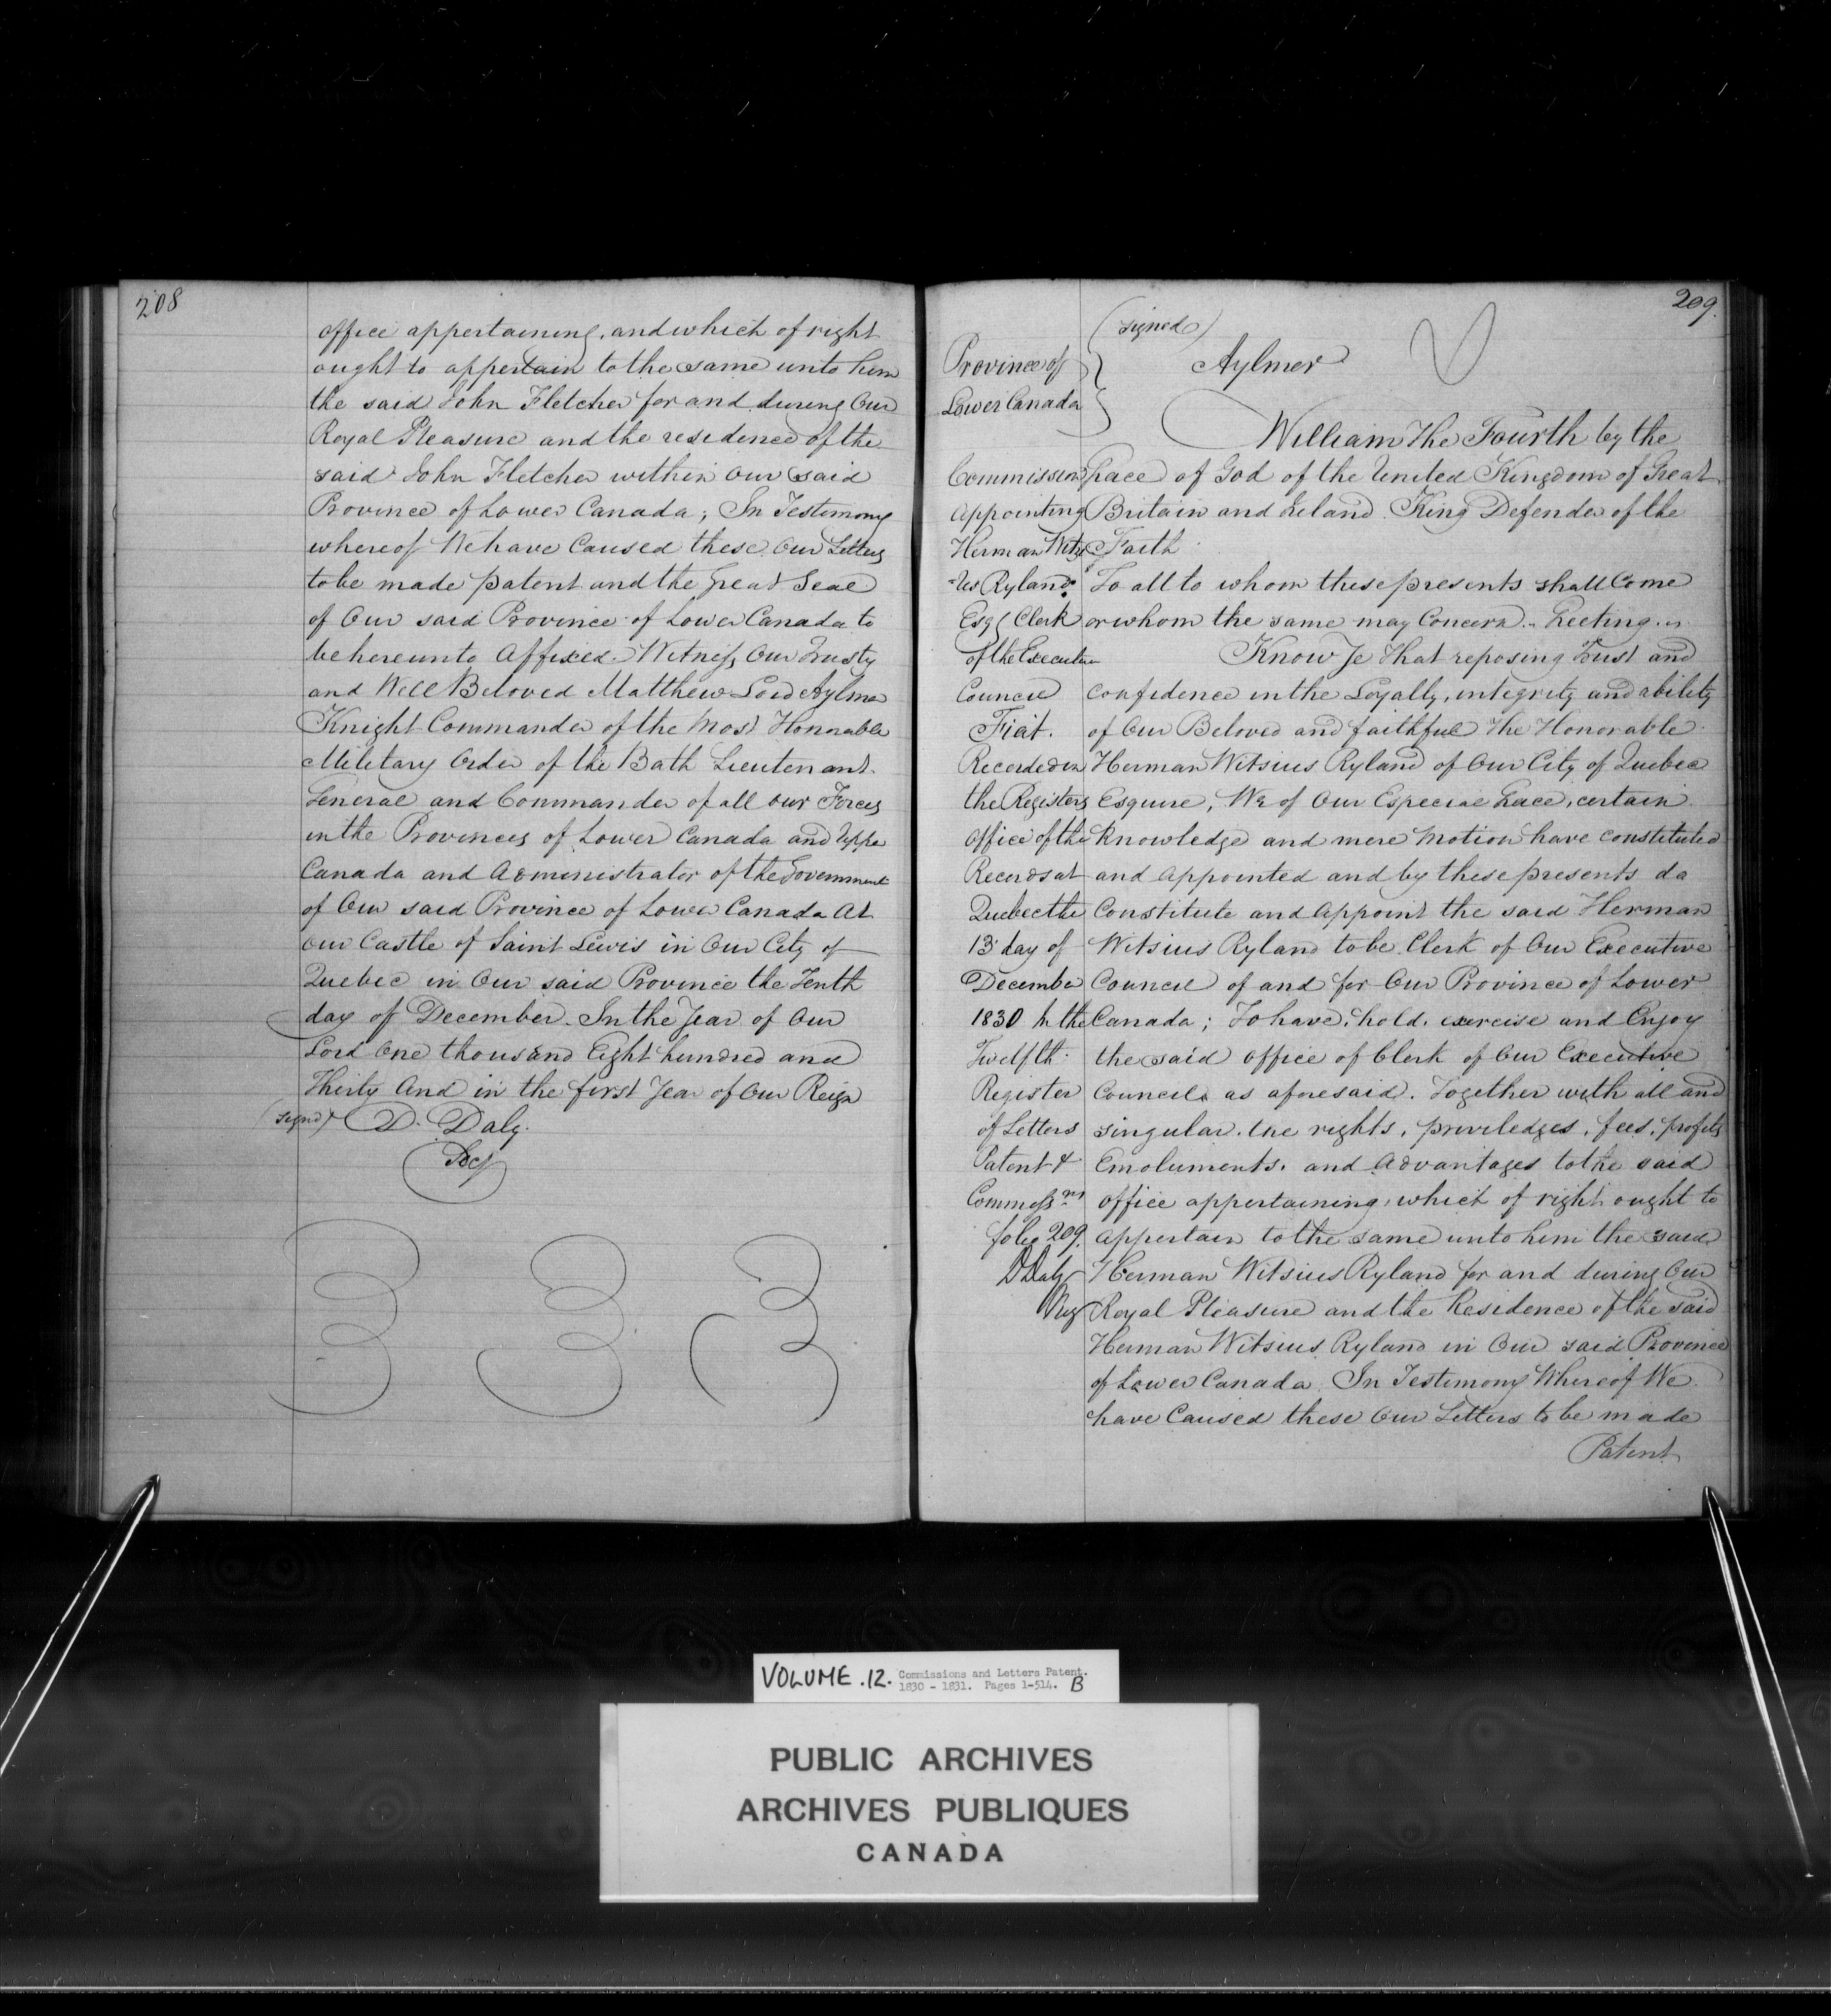 208
office appertaining, and which of right
ought to appertain to the same unto him
the said John Fletcher for and during Our
Royal Pleasure and the residence of the
said John Fletcher within our said
Province of Lower Canada; In Testimony
whereof We have Caused these Our Letters
to be made patent and the Great Seal
of Our said Province of Lower Canada to
be hereunto Affixed. Witness Our Trusty
and Well Beloved Matthew Lord Aylmer
Knight Commander of the Most Honorable
Military Order of the Bath Lieutenant
General and Commander of all our Forces
in the Provinces of Lower Canada and Upper
Canada and Administrator of the Government
of Our said Province of Lower Canada At
our Castle of Saint Lewis in Our City of
Quebec in Our said Province the Tenth
day of December. In the Year of Our
Lord One thousand Eight hundred and
Thirty And in the first Year of Our Reign
(signd) D. Daly.
Secy
209.
(signed)
Aylmer
Province of
Lower Canada
William The Fourth by the
Grace of God of the United Kingdom of Great
Britain and Ireland King Defender of the
Faith
To all to whom these presents shall Come
or whom the same may Concern. Greeting.
Know Ye that reposing Trust and
confidence in the Loyalty, integrity and ability
of Our Beloved and faithful The Honorable
Herman Witsius Ryland of Our City of Quebec
Esquire, We of Our Especial Grace, certain
knowledge and mere Motion have constituted
and appointed and by these presents do
Constitute and Appoint the said Herman
Witsius Ryland to be Clerk of Our Executive
Council of and for Our Province of Lower
Canada; To have, hold, exercise and Enjoy
the said office of Clerk of Our Executive
Council as aforesaid. Together with all and
singular the rights, priviledges, fees, profits
Emoluments, and Advantages to the said
office appertaining, which of right ought to
appertain to the same unto him the said
Herman Witsius Ryland for and during Our
Royal Pleasure and the Residence of the said
Herman Witsius Ryland in Our said Province
of Lower Canada. In Testimony Whereof We
have Caused these Our Letters to be made
Patent
Commission
Appointing
Herman Witsi
=us Ryland
Esqr Clerk
of the Executive
Council
Fiat.
Recorded in
the Registers
Office of the
Records at
Quebec the
13 day of
December
1830 In the
Twelfth
Register
of Letters
Patent &
Commissns
folio 209.
D Daly
Reg
VOLUME .12. Commissions and Letters Patent.
1830 - 1831. Pages 1-514. B
PUBLIC ARCHIVES
ARCHIVES PUBLIQUES
CANADA